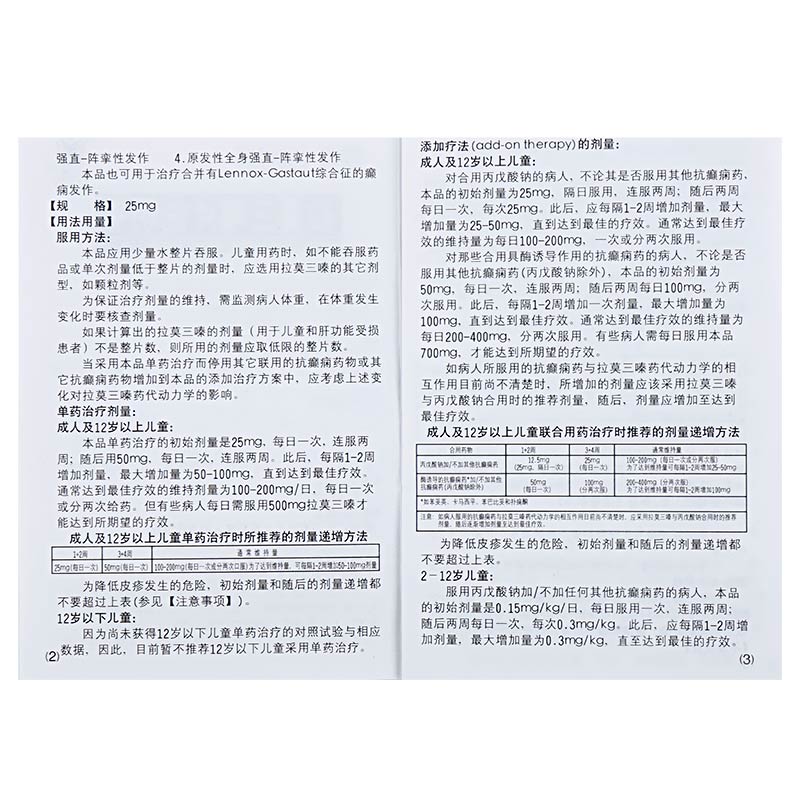 强直-阵挛性发作　4.原发性全身强直-阵挛性发作
本品也可用于治疗合并有Lennox-Gastaut综合征的癫
痫发作。
【规　格】 25mg
【用法用量】
服用方法:
本品应用少量水整片吞服。儿童用药时，如不能吞服药
品或单次剂量低于整片的剂量时，应选用拉莫三嗪的其它剂
型，如颗粒剂等。
为保证治疗剂量的维持，需监测病人体重，在体重发生
变化时要核查剂量。
如果计算出的拉莫三嗪的剂量（用于儿童和肝功能受损
患者）不是整片数，则所用的剂量应取低限的整片数。
当采用本品单药治疗而停用其它联用的抗癫痫药物或其
它抗癫痫药物增加到本品的添加治疗方案中，应考虑上述变
化对拉莫三嗪药代动力学的影响。
单药治疗剂量:
成人及12岁以上儿童:
本品单药治疗的初始剂量是25mg，每日一次，连服两
周；随后用50mg，每日一次，连服两周。此后，每隔1-2周
增加剂量，最大增加量为50-100mg，直到达到最佳疗效。
通常达到最佳疗效的维持量为100-200mg/日，每日一次
或分两次给药。但有些病人每日需服用500mg拉莫三嗪才
能达到所期望的疗效。
成人及12岁以上儿童单药治疗时所推荐的剂量递增方法
1+2周　3+4周　通常维持量
25mg(每日一次)　50mg(每日一次)　100-200mg(每日一次或分两次口服)为了达到维持量，可每隔1-2周增加50-100mg剂量
为降低皮疹发生的危险，初始剂量和随后的剂量递增都
不要超过上表(参见【注意事项】)。
12岁以下儿童:
因为尚未获得12岁以下儿童单药治疗的对照试验与相应
数据，因此，目前暂不推荐12岁以下儿童采用单药治疗。
(2)
添加疗法(add-on therapy)的剂量:
成人及12岁以上儿童:
对合用丙戊酸钠的病人，不论其是否服用其他抗癫痫药，
本品的初始剂量为25mg，隔日服用，连服两周；随后两周
每日一次，每次25mg。此后，应每隔1-2周增加剂量，最大
增加量为25-50mg，直到达到最佳的疗效。通常达到最佳疗
效的维持量为每日100-200mg，一次或分两次服用。
对那些合用具酶诱导作用的抗癫痫药的病人，不论是否
服用其他抗癫痫药(丙戊酸钠除外)，本品的初始剂量为
50mg，每日一次，连服两周；随后两周每日100mg，分两
次服用。此后，每隔1-2周增加一次剂量，最大增加量为
100mg，直到达到最佳疗效。通常达到最佳疗效的维持量为
每日200-400mg，分两次服用。有些病人需每日服用本品
700mg，才能达到所期望的疗效。
如病人所服用的抗癫痫药与拉莫三嗪药代动力学的相
互作用目前尚不清楚时，所增加的剂量应该采用拉莫三嗪
与丙戊酸钠合用时的推荐剂量，随后，剂量应增加至达到
最佳疗效。
成人及12岁以上儿童联合用药治疗时推荐的剂量递增方法
合用药物　1+2周　3+4周　通常维持量
丙戊酸钠加/不加其他抗癫痫药　12.5mg (25mg，隔日一次)　25mg (每日一次)　100-200mg (每日一次或分两次服) 为了达到维持量可每隔1-2周增加25-50mg
酶诱导的抗癫痫药*加/不加其他抗癫痫药(丙戊酸钠除外)　50mg (每日一次)　100mg (分两次服)　200-400mg (分两次服) 为了达到维持量可每隔1-2周增加100mg
*如苯妥英、卡马西平、苯巴比妥和扑痫酮
注意：如病人服用的抗癫痫药与拉莫三嗪药代动力学的相互作用目前尚不清楚时，应采用拉莫三嗪与丙戊酸钠合用时的推荐
剂量，随后逐渐增加剂量至达到最佳疗效。
为降低皮疹发生的危险，初始剂量和随后的剂量递增都
不要超过上表。
2-12岁儿童:
服用丙戊酸钠加/不加任何其他抗癫痫药的病人，本品
的初始剂量是0.15mg/kg/日，每日服用一次，连服两周；
随后两周每日一次，每次0.3mg/kg。此后，应每隔1-2周增
加剂量，最大增加量为0.3mg/kg，直至达到最佳的疗效。
(3)